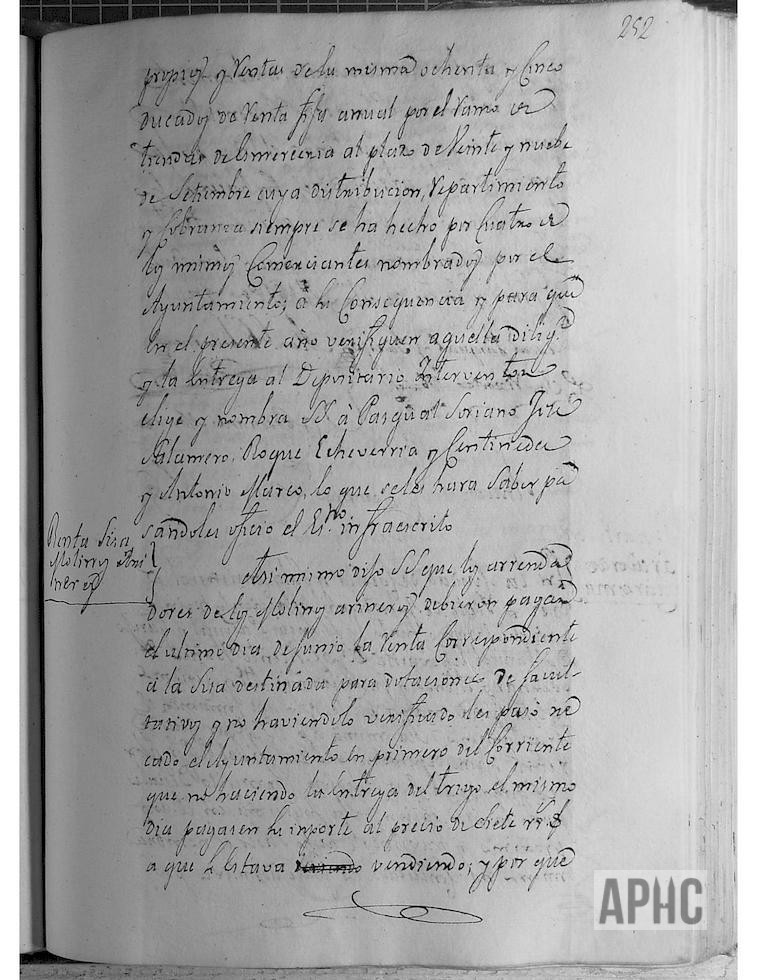 252
propios y Rentas de la misma ochenta y Cinco
ducados de Renta fija anual por el Ramo de
tiendas de lamerceria al plazo de Veinte y nuebe
de Setiembre cuya distribucion, Repartimiento
y Cobranza siempre se ha hecho por Cuatro de
los mimos Comerciantes nombrados por el
Ayuntamiento; a la Consequencia y para que
en el presente año verifiquen aquella dilig.ª
y la entrega al Depositario Interventor
elige y nombra SS. à Pasqual Soriano Jose
Salamero, Roque Echeverria y Centineda
y Antonio Marco, lo que se les hara Saber pa
sandoles oficio el Es.no infraescrito
Renta Sisa
Molinos Ari
neros
Asi mismo dijo SS que los arrenda
dores de los Molinos arineros debieron pagar
el ultimo dia de Junio la Renta Correspondiente
á la Sisa destinada para dotaciones de facul-
tativos y no haviendolo verificado les pasò re
cado el Ayuntamiento en primero del Corriente
que no haciendo la entrega del trigo el mismo
dia pagasen su inporte al precio de siete
a que Estava vendiendo; y por que
APHC